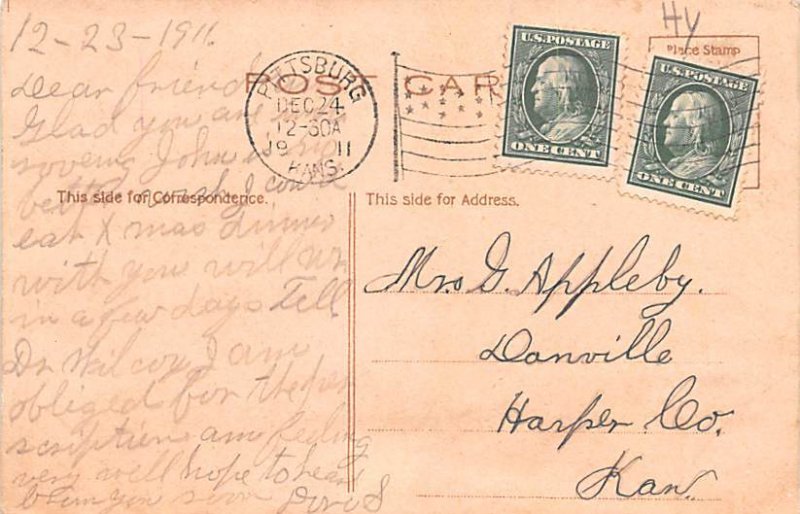 12-23-1911.
Dear friend
Glad you are
John is
better wish I could
eat Xmas dinner
with you will
in a few days Tell
Dr Wilcox I am
obliged for the
scription am feeling
very well hope to hear
from you soon
POST CARD
PITTSBURG
DEC 24
12-30A
19 11
KANS.
Hy
Place Stamp
U.S.POSTAGE
ONE CENT
U.S.POSTAGE
ONE CENT
This side for Correspondence.
This side for Address.
Mrs G. Appleby.
Danville
Harper Co.
Kan